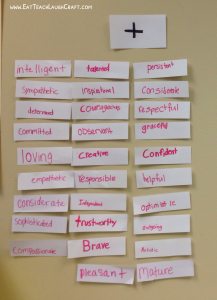 www.EatTeachLaughCraft.com
+
intelligent talented persistent
sympathetic inspirational considerate
determined courageous respectful
committed observant graceful
loving creative Confident
empathetic responsible helpful
considerate Independent optimistic
sophisticated trustworthy outgoing
compassionate Brave
pleasant Mature